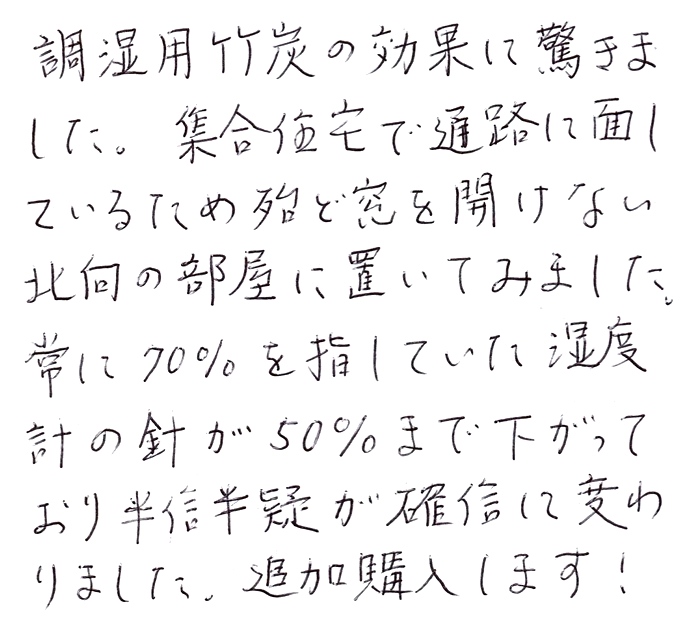 調湿用竹炭の効果に驚きま
した。集合住宅で通路に面し
ているため殆ど窓を開けない
北向の部屋に置いてみました。
常に70%を指していた湿度
計の針が50%まで下がって
おり半信半疑が確信に変わ
りました。追加購入します!